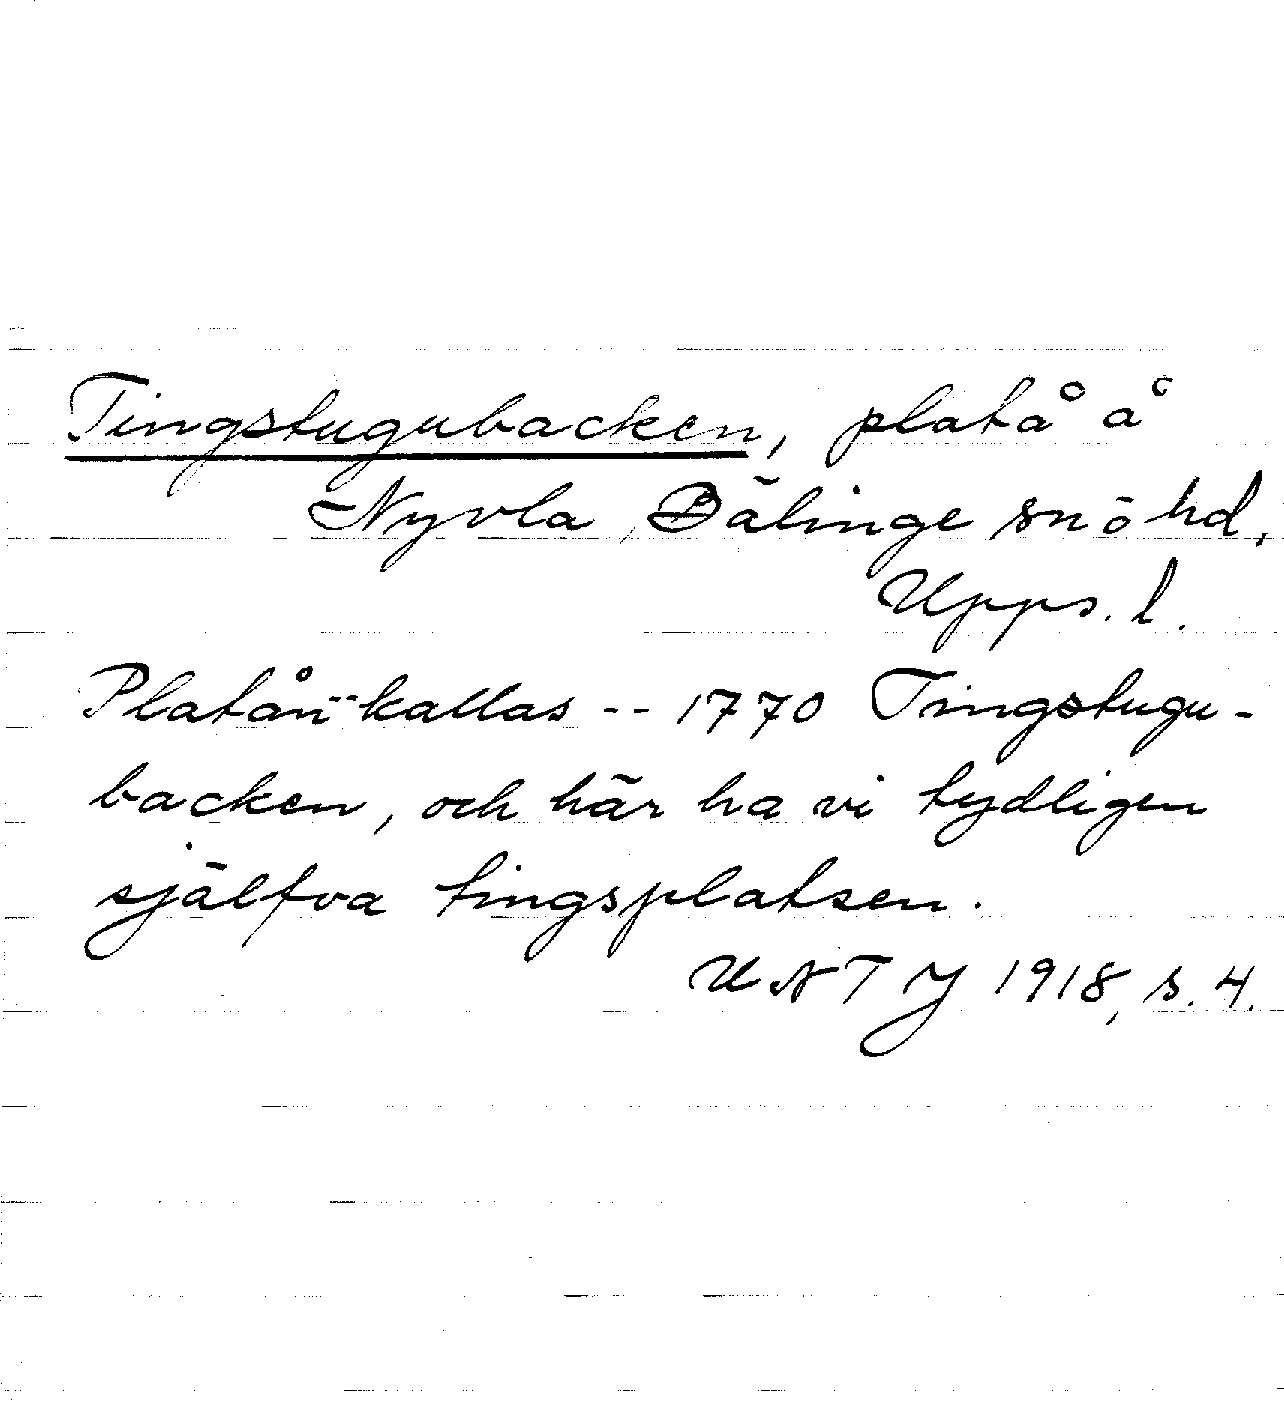 Tingstugubacken, platå å
Nyvla, Bälinge sn o hd,
Upps. l.
Platån -- kallas -- 1770 Tingstugu-
backen, och här ha vi tydligen
själfva tingsplatsen.
UNT J 1918, s. 4.